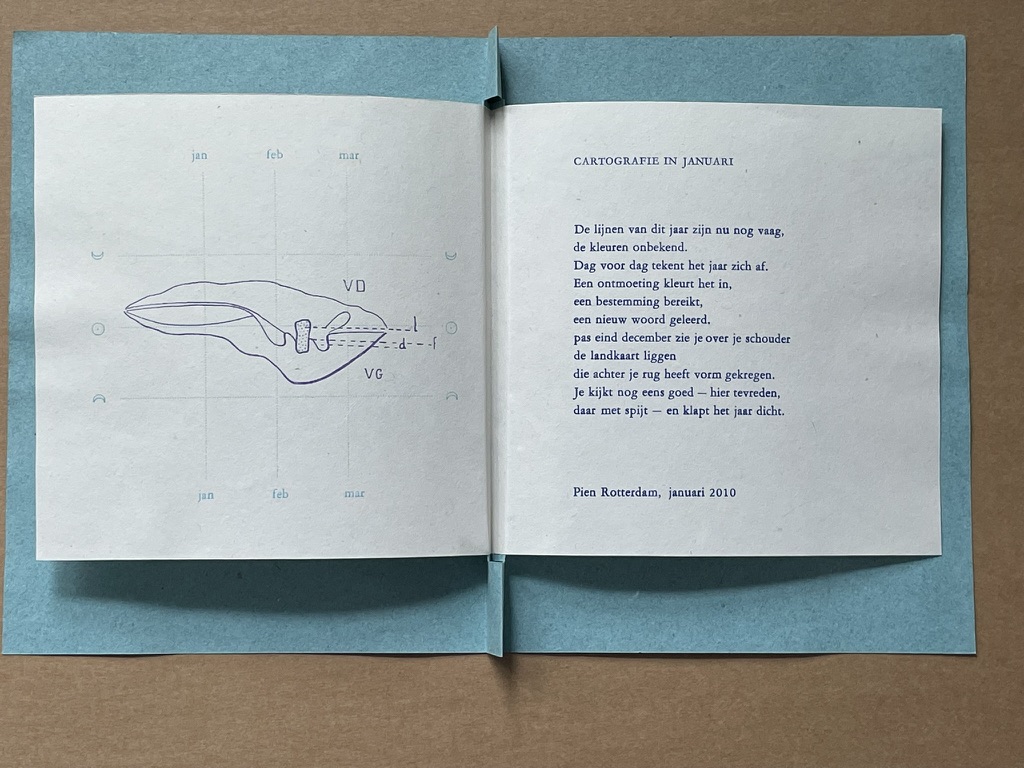 jan feb mar
VD
l
d f
VG
jan feb mar
CARTOGRAFIE IN JANUARI
De lijnen van dit jaar zijn nu nog vaag,
de kleuren onbekend.
Dag voor dag tekent het jaar zich af.
Een ontmoeting kleurt het in,
een bestemming bereikt,
een nieuw woord geleerd,
pas eind december zie je over je schouder
de landkaart liggen
die achter je rug heeft vorm gekregen.
Je kijkt nog eens goed — hier tevreden,
daar met spijt — en klapt het jaar dicht.
Pien Rotterdam, januari 2010